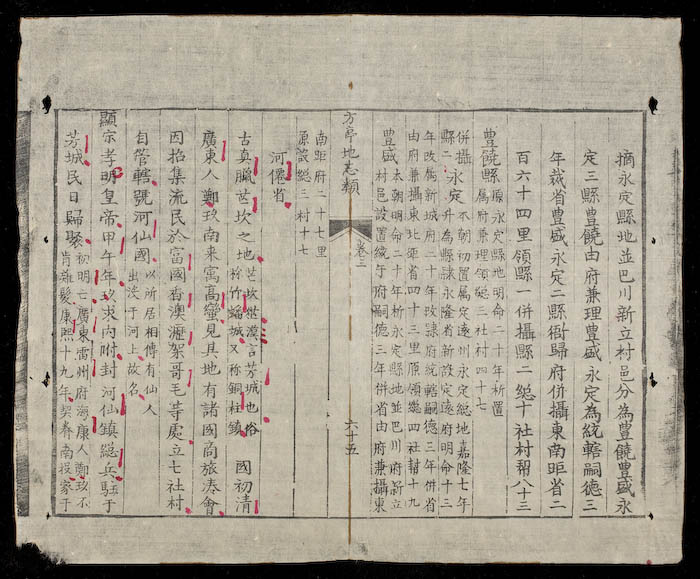 摘永定縣地並巴川新立村邑分為豐饒豐盛永
定三縣豐饒由府兼理豐盛永定為統轄嗣德三
年裁省豐盛永定二縣衙歸府併攝東南距省二
百六十四里領縣一併攝縣二總十社村幇八十三
豐饒縣 原永定縣地明命二十年析置
屬府兼理領總三社村四十七
併攝永定 本朝初置屬定遠州永定總地嘉隆七年
縣二 升為縣隸永隆省新設定遠府明命十三
年改屬新城府二十年改隸府統轄嗣德三年併省
由府兼攝東北距省四十三里原領總四社幇十九
豐盛 本朝明命二十年析永定縣地並巴川府新立
村邑設置統于府嗣德三年併省由府兼攝東
南距府二十七里
原設總三村十七
方亭地志類
卷三
六十五
河僊省
古真臘芒坎之地 芒坎華漢言芳城也俗
称竹幡城又称銅柱鎮
國初清
廣東人鄚玖南来寓高蠻見其地有諸國商旅湊會
因招集流民於富國香澳瀝架哥毛等處立七社村
自管轄號河仙國 以所居相傳有仙人
出沒于河上故名
顯宗孝明皇帝甲午年玖求內附封河仙鎮總兵駐于
芳城民日歸聚 初明亡廣東雷州府海康人鄚玖不
肯薙髮康熙十九年契眷南投家于